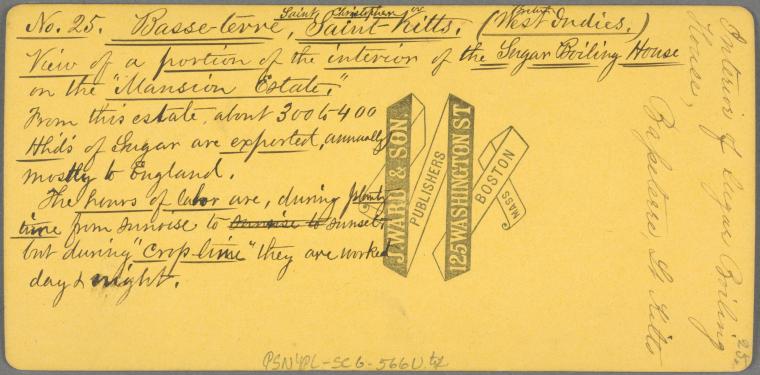 No. 25. Basse-terre, Saint Christopher or Saint-Kitts. (British West Indies.)
View of a portion of the interior of the Sugar Boiling House
on the "Mansion Estate."
From this estate, about 300 to 400
Hhds of Sugar are exported, annually
mostly to England.
The hours of labor are, during plenty
time from sunrise to sunrise to sunset,
but during "crop-time" they are worked
day & night.
J. WARD & SON
PUBLISHERS
125 WASHINGTON ST
BOSTON
MASS
Interior of Sugar Boiling
House,
Basseterre, St Kitts
25.
PSNYPL-SCG-566U